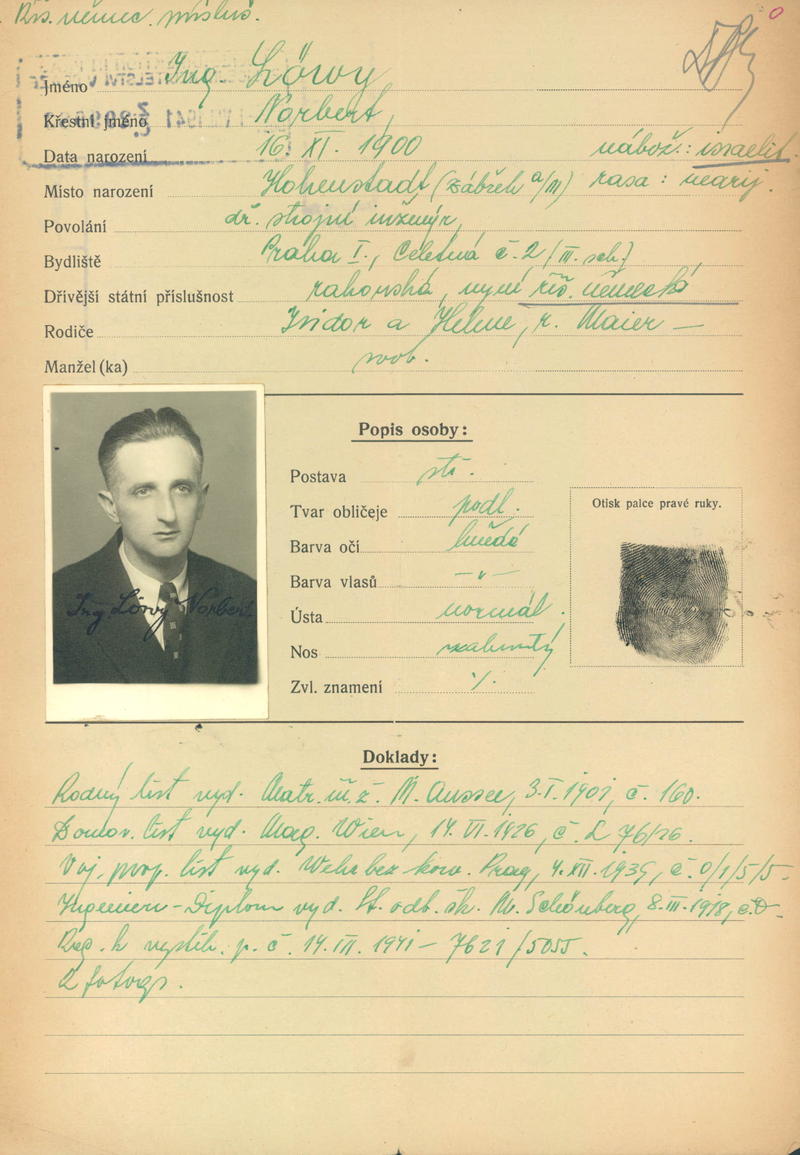 Říš. němec. přísluš.
Jméno Ing. Löwy
Křestní jméno Norbert,
Data narození 16. XI. 1900 nábož.: israelit.
Místo narození Hohenstadt (Zábřeh a/M) rasa: nearij.
Povolání dř. strojní inženýr,
Bydliště Praha I., Celetná č. 2 / III. sch.)
Dřívější státní příslušnost rakouská, nyní říš. německá
Rodiče Isidor a Helene, r. Maier —
Manžel (ka) svob.
Popis osoby:
Postava stř.
Tvar obličeje podl.
Otisk palce pravé ruky.
Barva očí hnědé
Barva vlasů — " —
Ústa normál.
Ing. Löwy Norbert
Nos zahnutý
Zvl. znamení %
Doklady:
Rodný list vyd. Matr. úř. ž. M. Aussee, 3. I. 1901, č. 160.
Domov. list vyd. Mag. Wien, 14. VI. 1926, č. L 76/26.
Voj. prop. list vyd. Wehrbez. kom. Prag, 4. XII. 1939, č. 0/1/5/5-
Ingenieur-Diplom vyd. St. odb. šk. M. Schönberg, 8. III. 1918,
14. III. 1941 - 7621/5055.
2 fotogr.